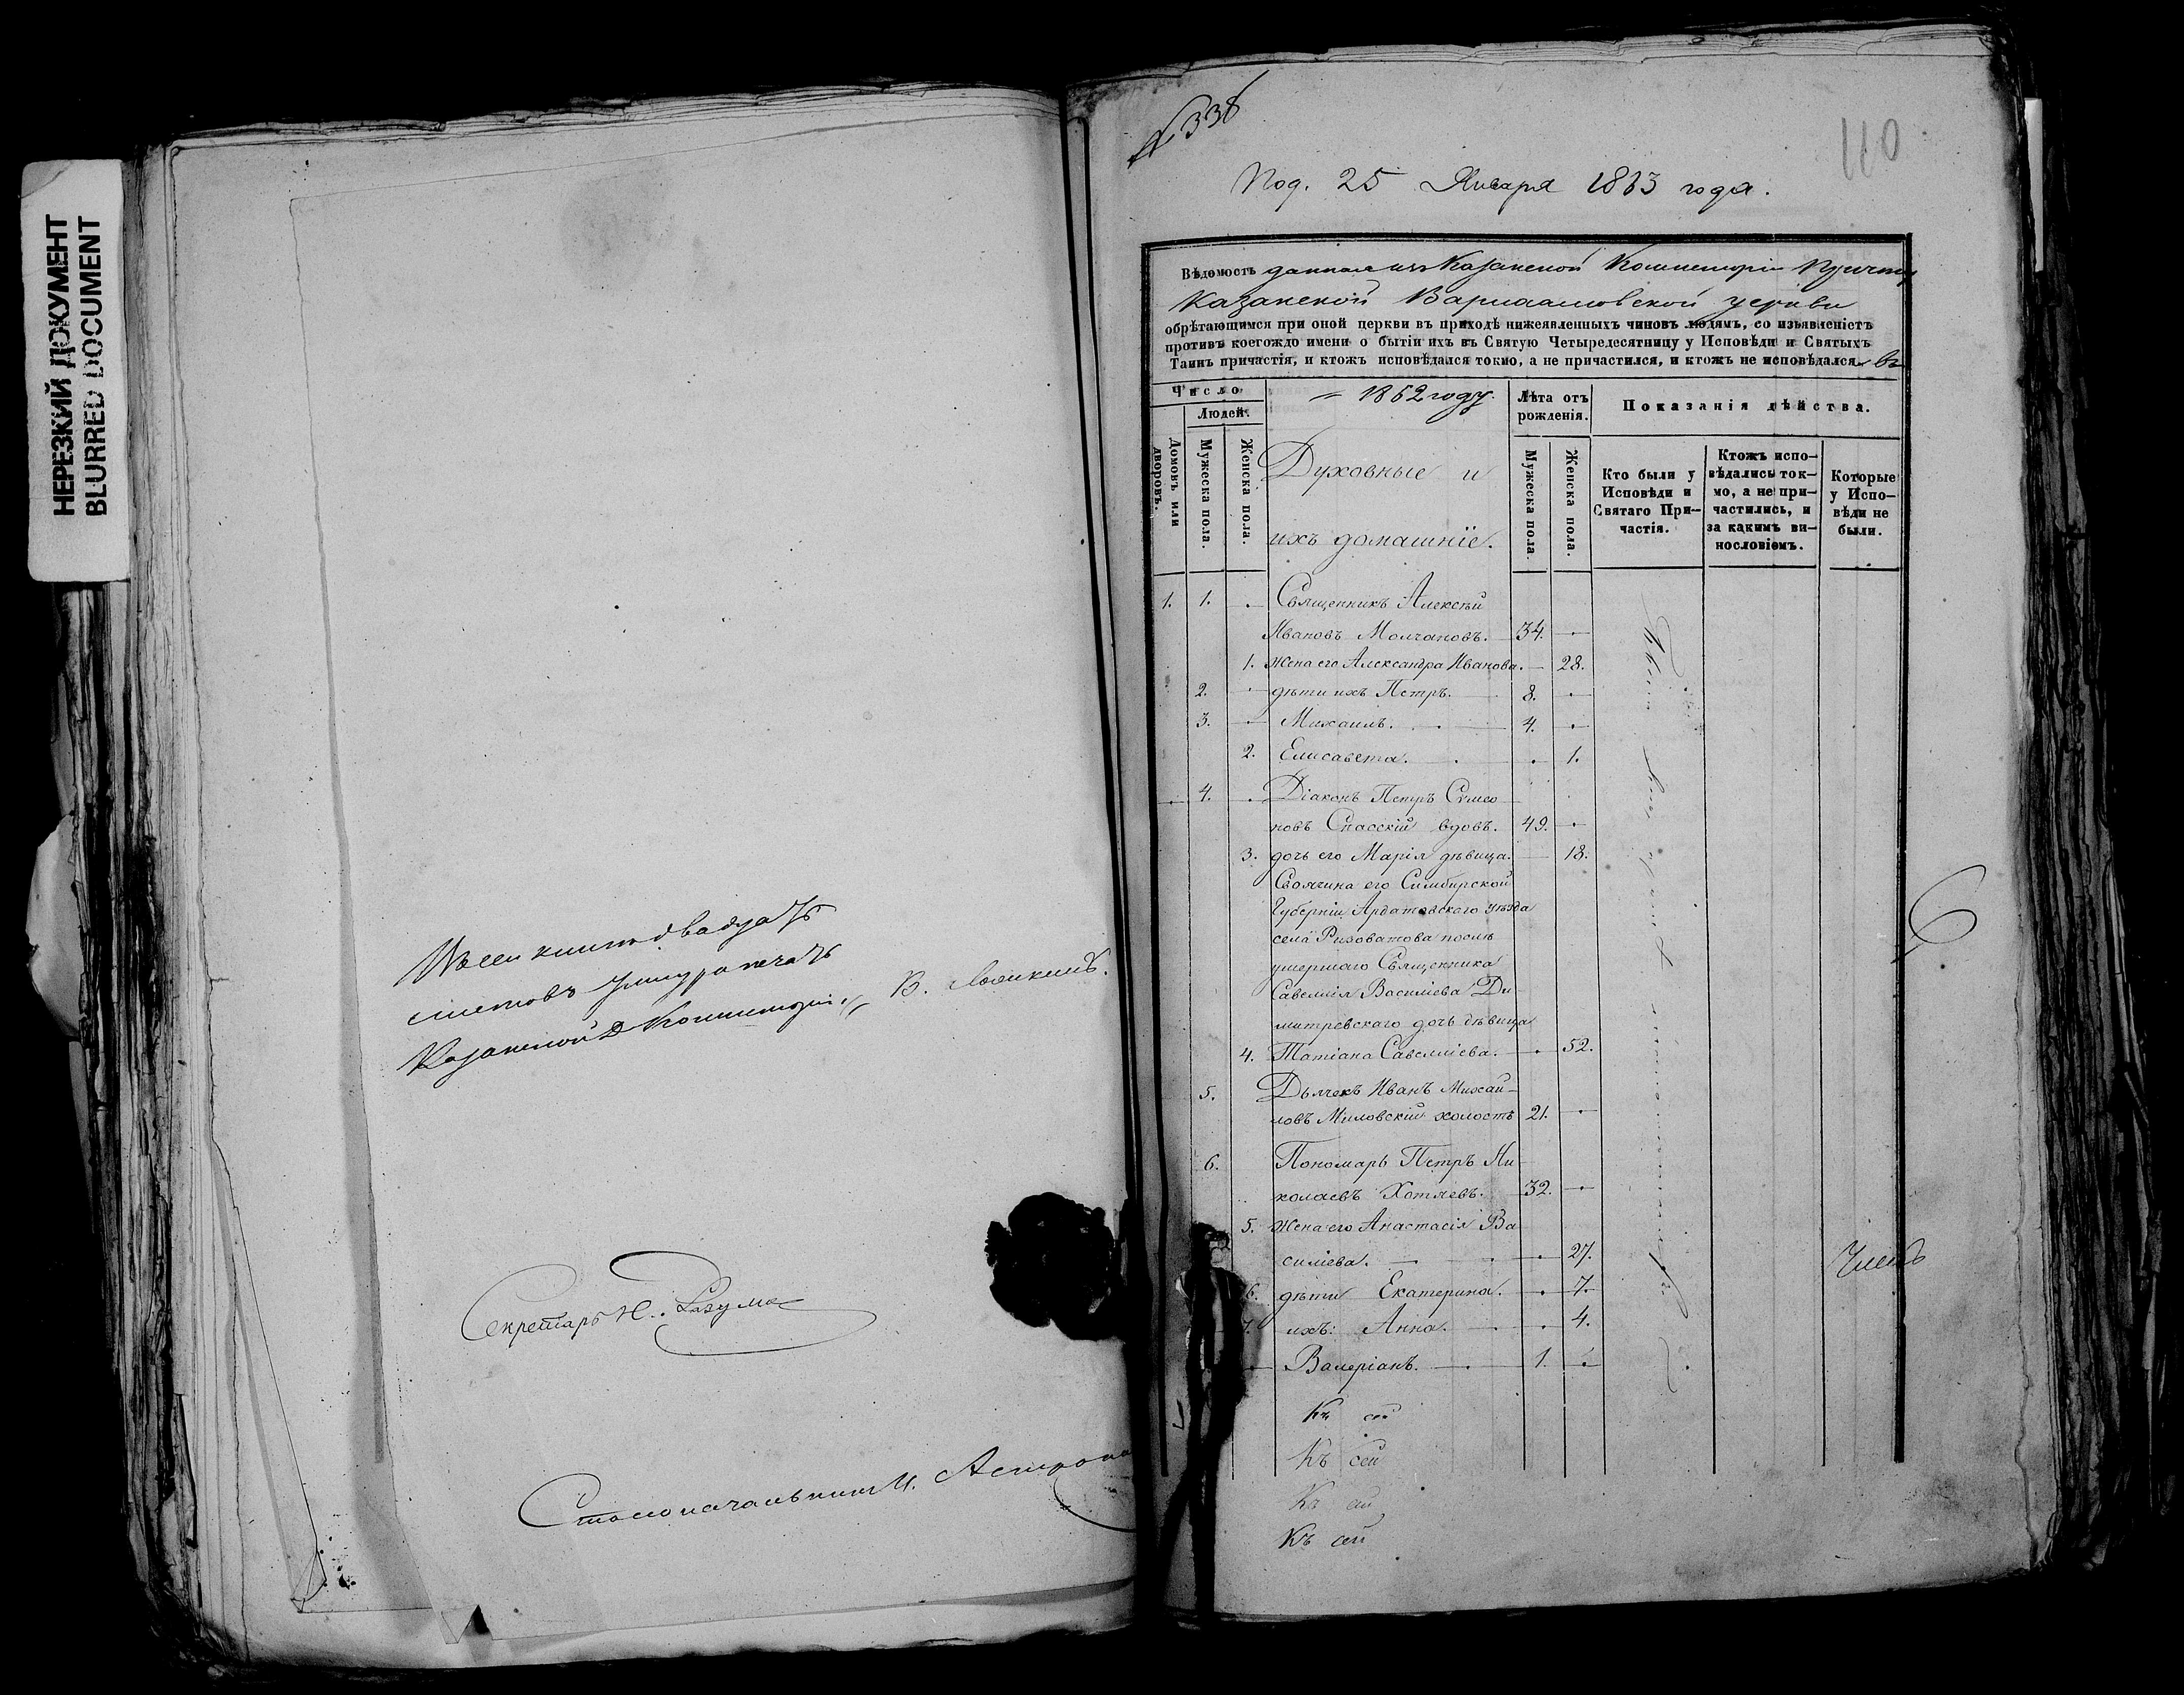 НЕРЕЗКИЙ ДОКУМЕНТ
BLURRED DOCUMENT
двадцать
листовъ
Казанской Д Консисторіи
В.
Секретарь Н. Разумо
Столоначальник И. Астроно
№ 338
110
Под. 25 Января 1863 года.
Вѣдомость данная изъ Казанской Консисторіи Причту
Казанской Варлаамовской церкви
обрѣтающимся при оной церкви въ приходѣ нижеявленныхъ чиновъ людямъ, со изъявленіемъ
противъ коегождо имени о бытіи ихъ въ Святую Четыредесятницу у Исповѣди и Святыхъ
Таинъ причастія, и ктожъ исповѣдался токмо, а не причастился, и ктожъ не исповѣдался въ
Число
Людей.
Домовъ или дворовъ.
Мужеска пола.
Женска пола.
1862 году.
Духовные и
ихъ домашніе.
Лѣта отъ рожденія.
Мужеска пола.
Женска пола.
Показанія дѣйства.
Кто были у Исповѣди и Святаго При-частія.
Ктожъ испо-вѣдались ток-мо, а не при-частились, и за какимъ ви-нословіемъ.
Которые у Испо-вѣди не были.
1. 1. Священникъ Алексѣй
Ивановъ Молчановъ. 34.
1. Жена его Александра Иванова. 28.
2. дѣти ихъ Петръ. 8.
3. Михаилъ. 4.
2. Елисавета. 1.
4. Діаконъ Петръ Симео
новъ Спасскій вдовъ. 49.
3. дочь его Марія дѣвица. 18.
Своячина его Симбирской
Губерніи Ардатовскаго уѣзда
села Ризоватова послѣ
умершаго Священника
Савелія Васильева Ди
митревскаго дочь дѣвица
4. Татіана Савеліева. 52.
5. Дьячекъ Иванъ Михай-
ловъ Миловскій холостъ 21.
6. Пономарь Петръ Ни-
колаевъ Хотяевъ. 32.
5. Жена его Анастасія Ва
силіева. 27.
6. дѣти Екатерина. 7.
7. ихъ: Анна. 4.
Валеріанъ. 1.
Къ сей
Къ сей
Къ сей
Къ сей